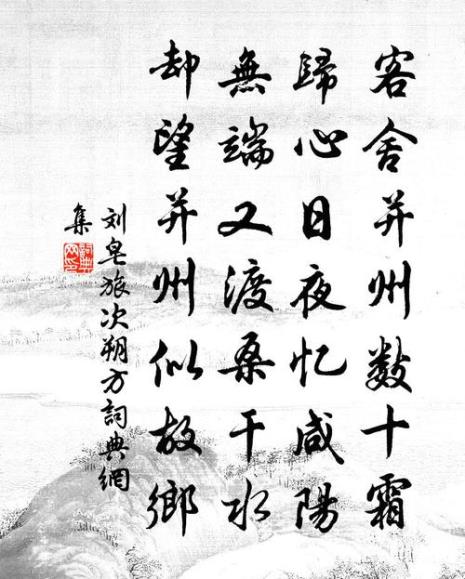 客舍并州数十霜
歸心日夜忆咸陽
無端又渡桑干水
却望并州似故鄉
刘皂旅次朔方詞典網
集